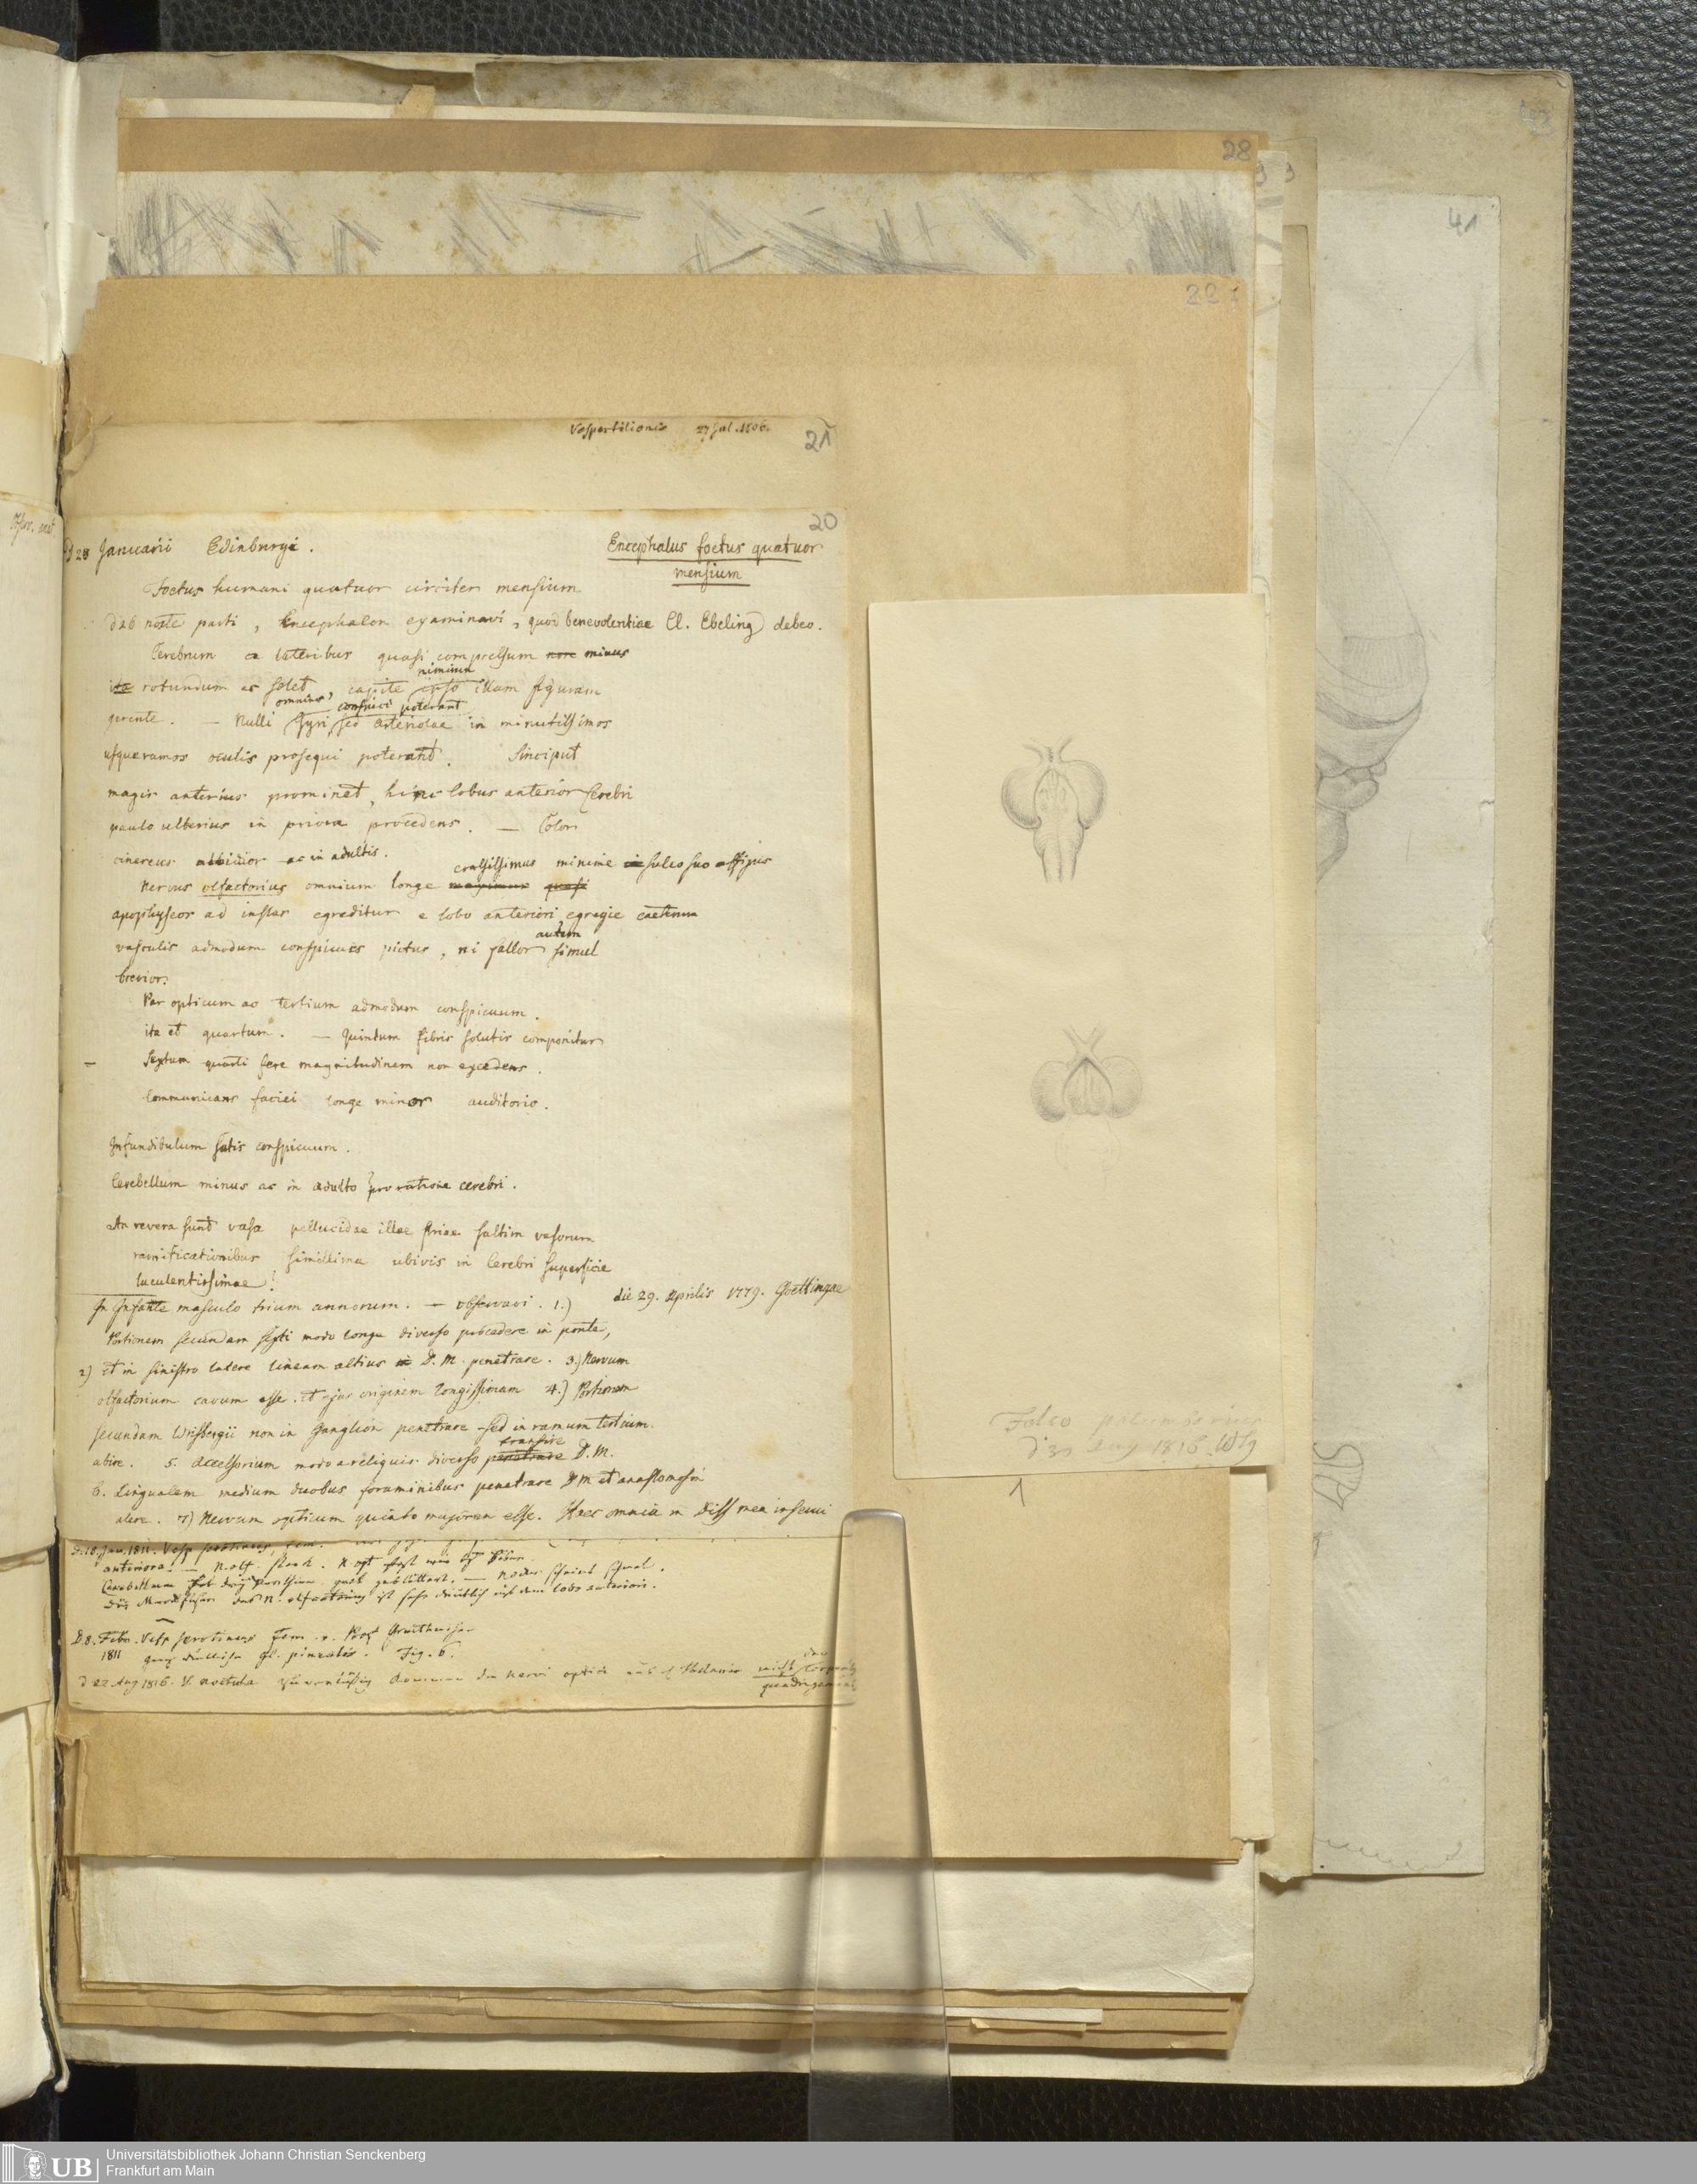 43
28
41
22
Vespertilionis 27 Jul. 1806.
21
20
D 28 Januarii Edinburgi.
Encephalus foetus quatuor
mensium
Foetus humani quatuor circiter mensium
d 26 nocte parti, Encephalon examinavi, quod benevolentiae Cl. Ebeling debeo.
Cerebrum a lateribus quasi compressum non minus
ita rotundum ac solet, capite ipso nimirum illam figuram
gerente. — Nulli omnino Gyri conspici poterant, sed arteriolae in minutissimos
usque ramos oculis prosequi poterant. Sinciput
magis anterius prominet, hinc lobus anterior Cerebri
paulo ulterius in priora procedens. — Color
cinereus albidior ac in adultis.
Nervus olfactorius omnium longe maximus quasi crassissimus minime in sulco suo affixus
apophyseos ad instar egreditur e lobo anteriori, egregie caeterum
vasculis admodum conspicuis pictus, ni fallor autem simul
brevior.
Par opticum ac tertium admodum conspicuum.
ita et quartum. — Quintum fibris solutis componitur
— Sextum quarti fere magnitudinem non excedens.
Communicans faciei longe minor auditorio.
Infundibulum satis conspicuum.
Cerebellum minus ac in adulto pro ratione cerebri.
An revera sunt vasa pellucidae illae striae saltim vasorum
ramificationibus simillima ubivis in Cerebri superficie
luculentissimae?
In Infante masculo trium annorum. — observavi. 1.) die 29. Aprilis 1779. Goettingae
Portionem secundam septi modo longe diverso procedere in ponte,
2) et in sinistro latere lineam altius in D. M. penetrare. 3.) Nervum
olfactorium cavum esse. et ejus originem longissimam 4.) Portionem
secundam Wrisbergii non in Ganglion penetrare sed in ramum tertium
abire. 5. Accessorium modo a reliquis diverso penetrare transire D. M.
6. Lingualem medium duobus foraminibus penetrare D M et anastomosin
alere. 7) Nervum opticum quinto majorem esse. Haec omnia in Diss mea inserui
D. 18. Jan. 1811. Vesp
anteriora. — N. olf. stark. N opt
Cerebellum
N. olfactorius ist sehr deutlich lobo anterioris.
D. 8. Febr. Vesp serotinus fem.
1811 gl. pinealis. Fig. 6.
D 22 Aug 1816. V. noctula nervi optici Thalamis nicht
quadrigemina
Falco palumbarius
d. 30 Aug 1816.
1
Universitätsbibliothek Johann Christian Senckenberg
Frankfurt am Main
UB